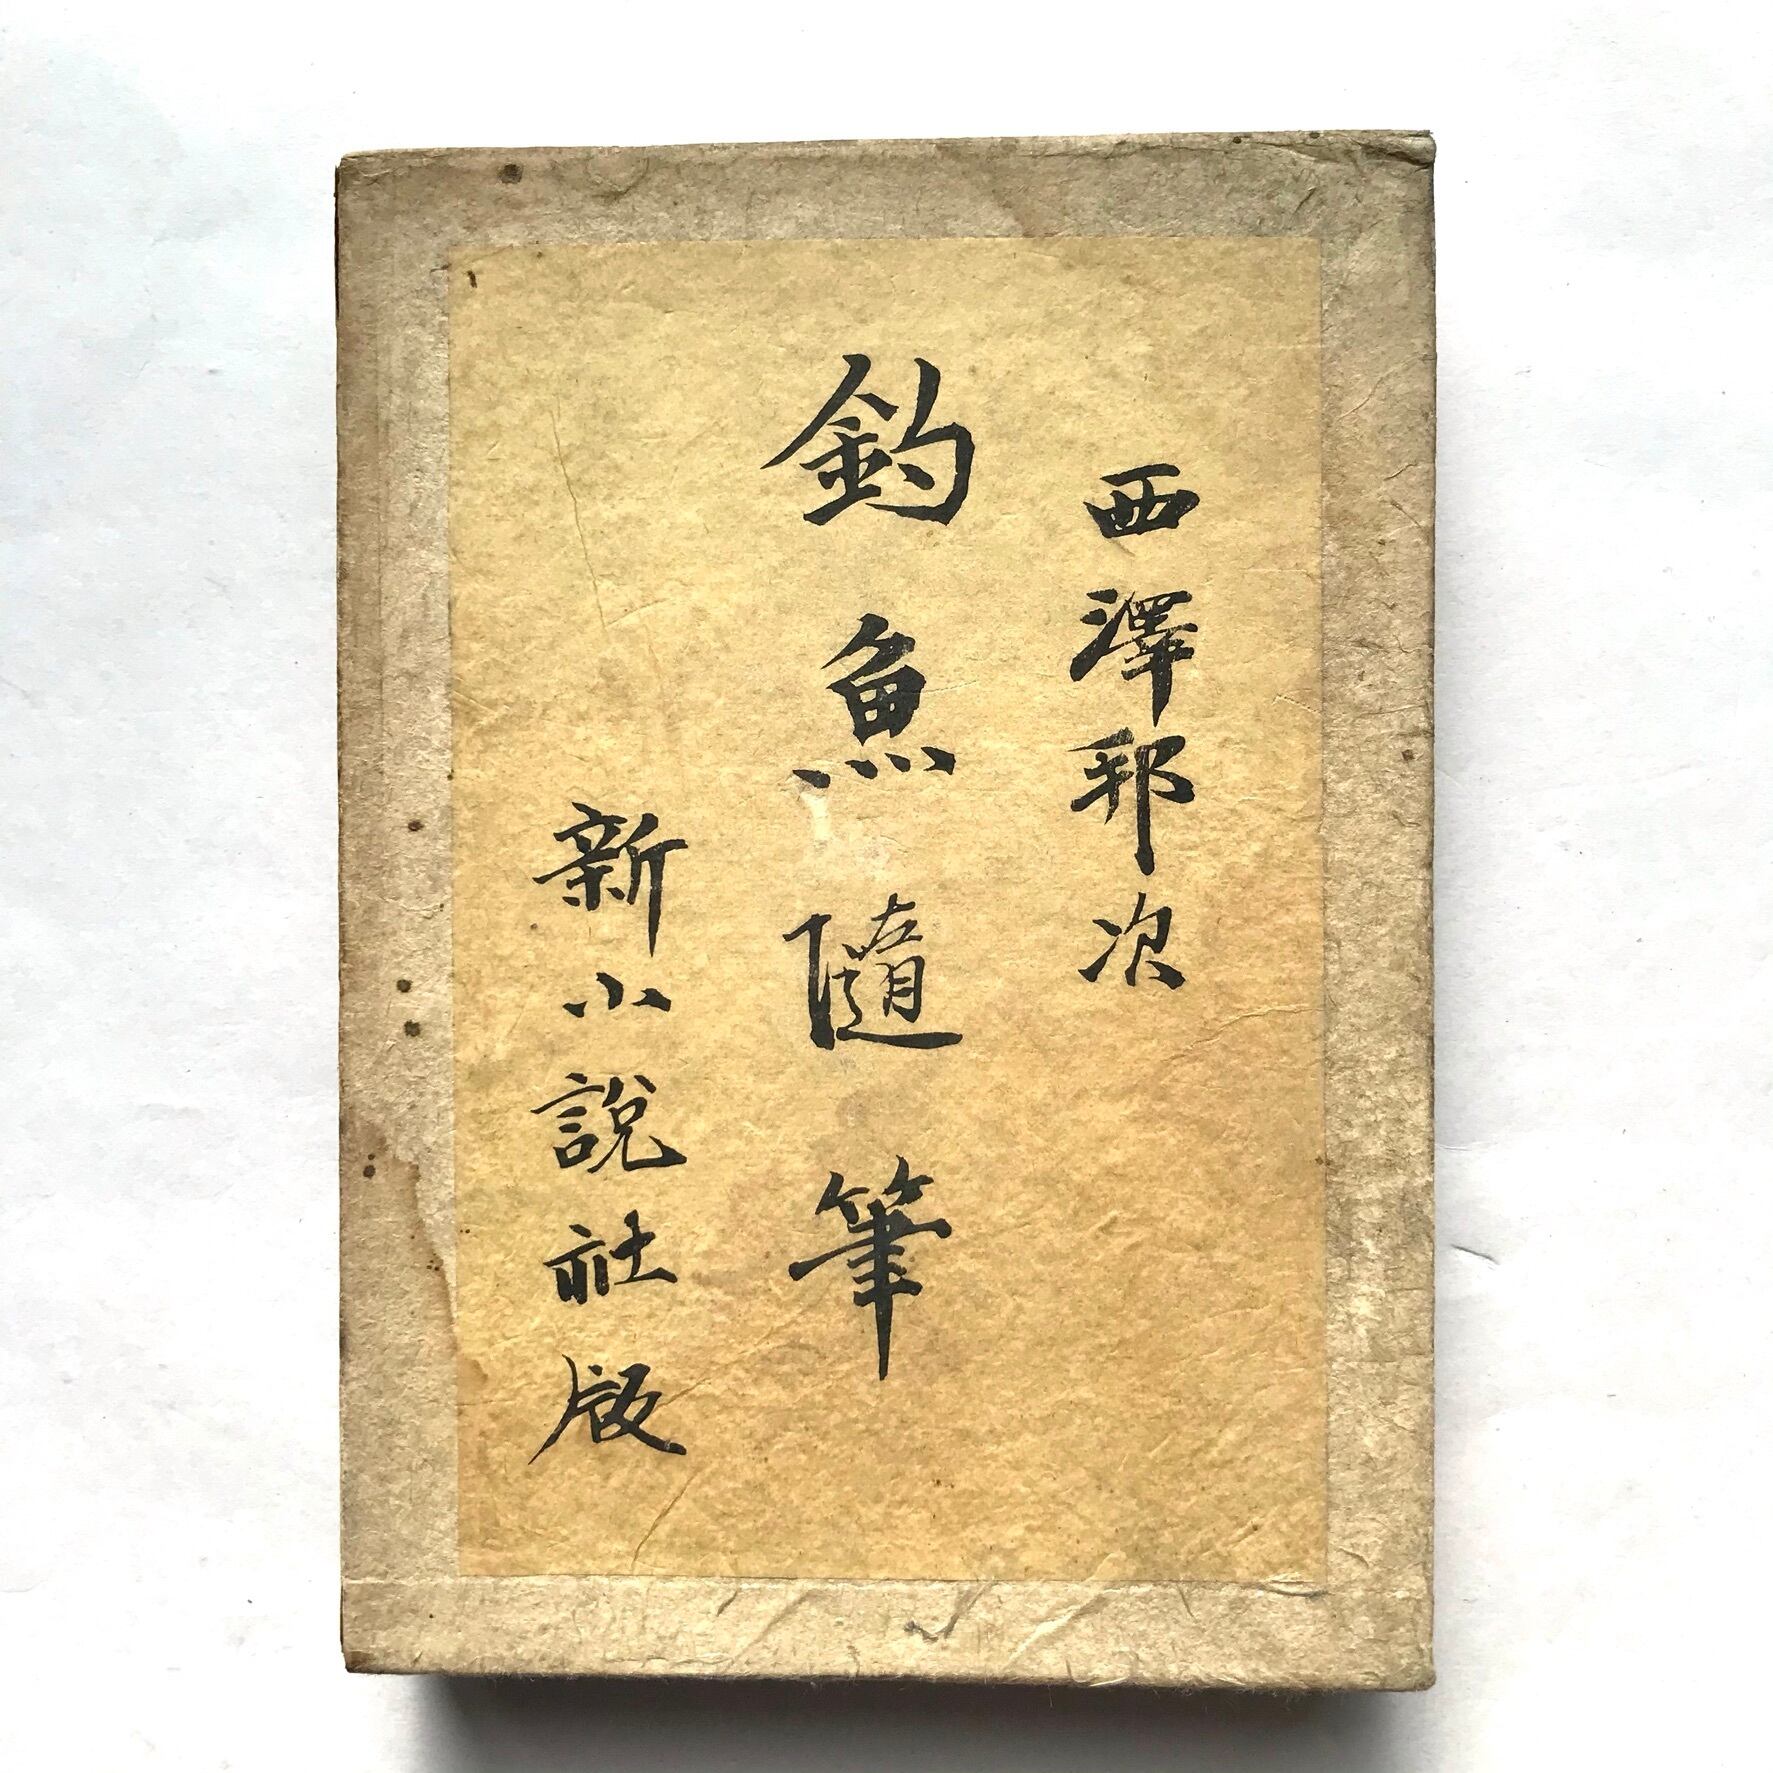 西澤邦次
釣魚隨筆
新小說社版